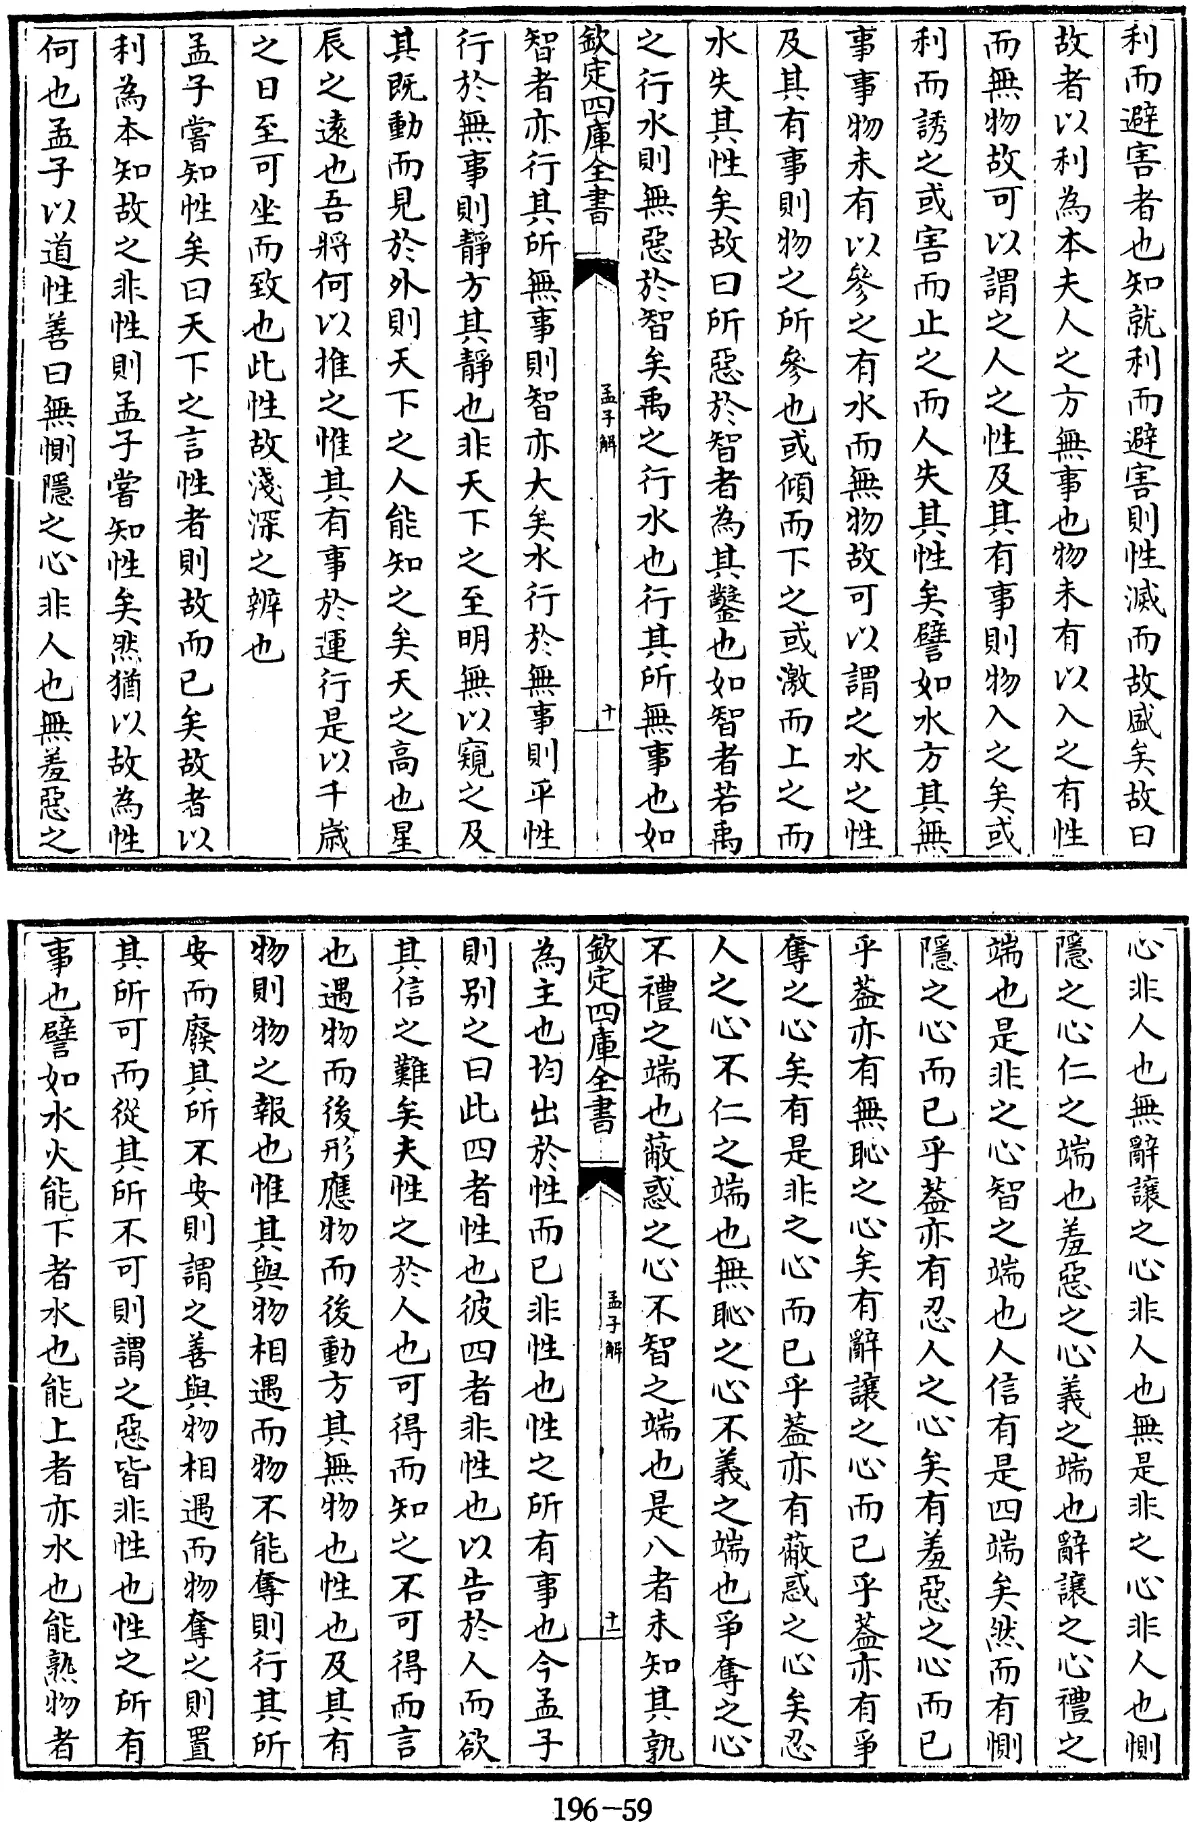 利而避害者也知就利而避害則性滅而故盛矣故曰
故者以利為本夫人之方無事也物未有以入之有性
而無物故可以謂之人之性及其有事則物入之矣或
利而誘之或害而止之而人失其性矣譬如水方其無
事事物未有以參之有水而無物故可以謂之水之性
及其有事則物之所參也或傾而下之或激而上之而
水失其性矣故曰所惡於智者為其鑿也如智者若禹
之行水則無惡於智矣禹之行水也行其所無事也如
欽定四庫全書
孟子解
十
智者亦行其所無事則智亦大矣水行於無事則平性
行於無事則靜方其靜也非天下之至明無以窺之及
其既動而見於外則天下之人能知之矣天之高也星
辰之遠也吾將何以推之惟其有事於運行是以千歲
之日至可坐而致也此性故淺深之辨也
孟子嘗知性矣曰天下之言性者則故而已矣故者以
利為本知故之非性則孟子嘗知性矣然猶以故為性
何也孟子以道性善曰無惻隱之心非人也無羞惡之
心非人也無辭讓之心非人也無是非之心非人也惻
隱之心仁之端也羞惡之心義之端也辭讓之心禮之
端也是非之心智之端也人信有是四端矣然而有惻
隱之心而已乎葢亦有忍人之心矣有羞惡之心而已
乎葢亦有無恥之心矣有辭讓之心而已乎葢亦有爭
奪之心矣有是非之心而已乎葢亦有蔽惑之心矣忍
人之心不仁之端也無恥之心不義之端也爭奪之心
不禮之端也蔽惑之心不智之端也是八者未知其孰
欽定四庫全書
孟子解
十一
為主也均出於性而已非性也性之所有事也今孟子
則别之曰此四者性也彼四者非性也以告於人而欲
其信之難矣夫性之於人也可得而知之不可得而言
也遇物而後形應物而後動方其無物也性也及其有
物則物之報也惟其與物相遇而物不能奪則行其所
安而廢其所不安則謂之善與物相遇而物奪之則置
其所可而從其所不可則謂之惡皆非性也性之所有
事也譬如水火能下者水也能上者亦水也能熟物者
196-59